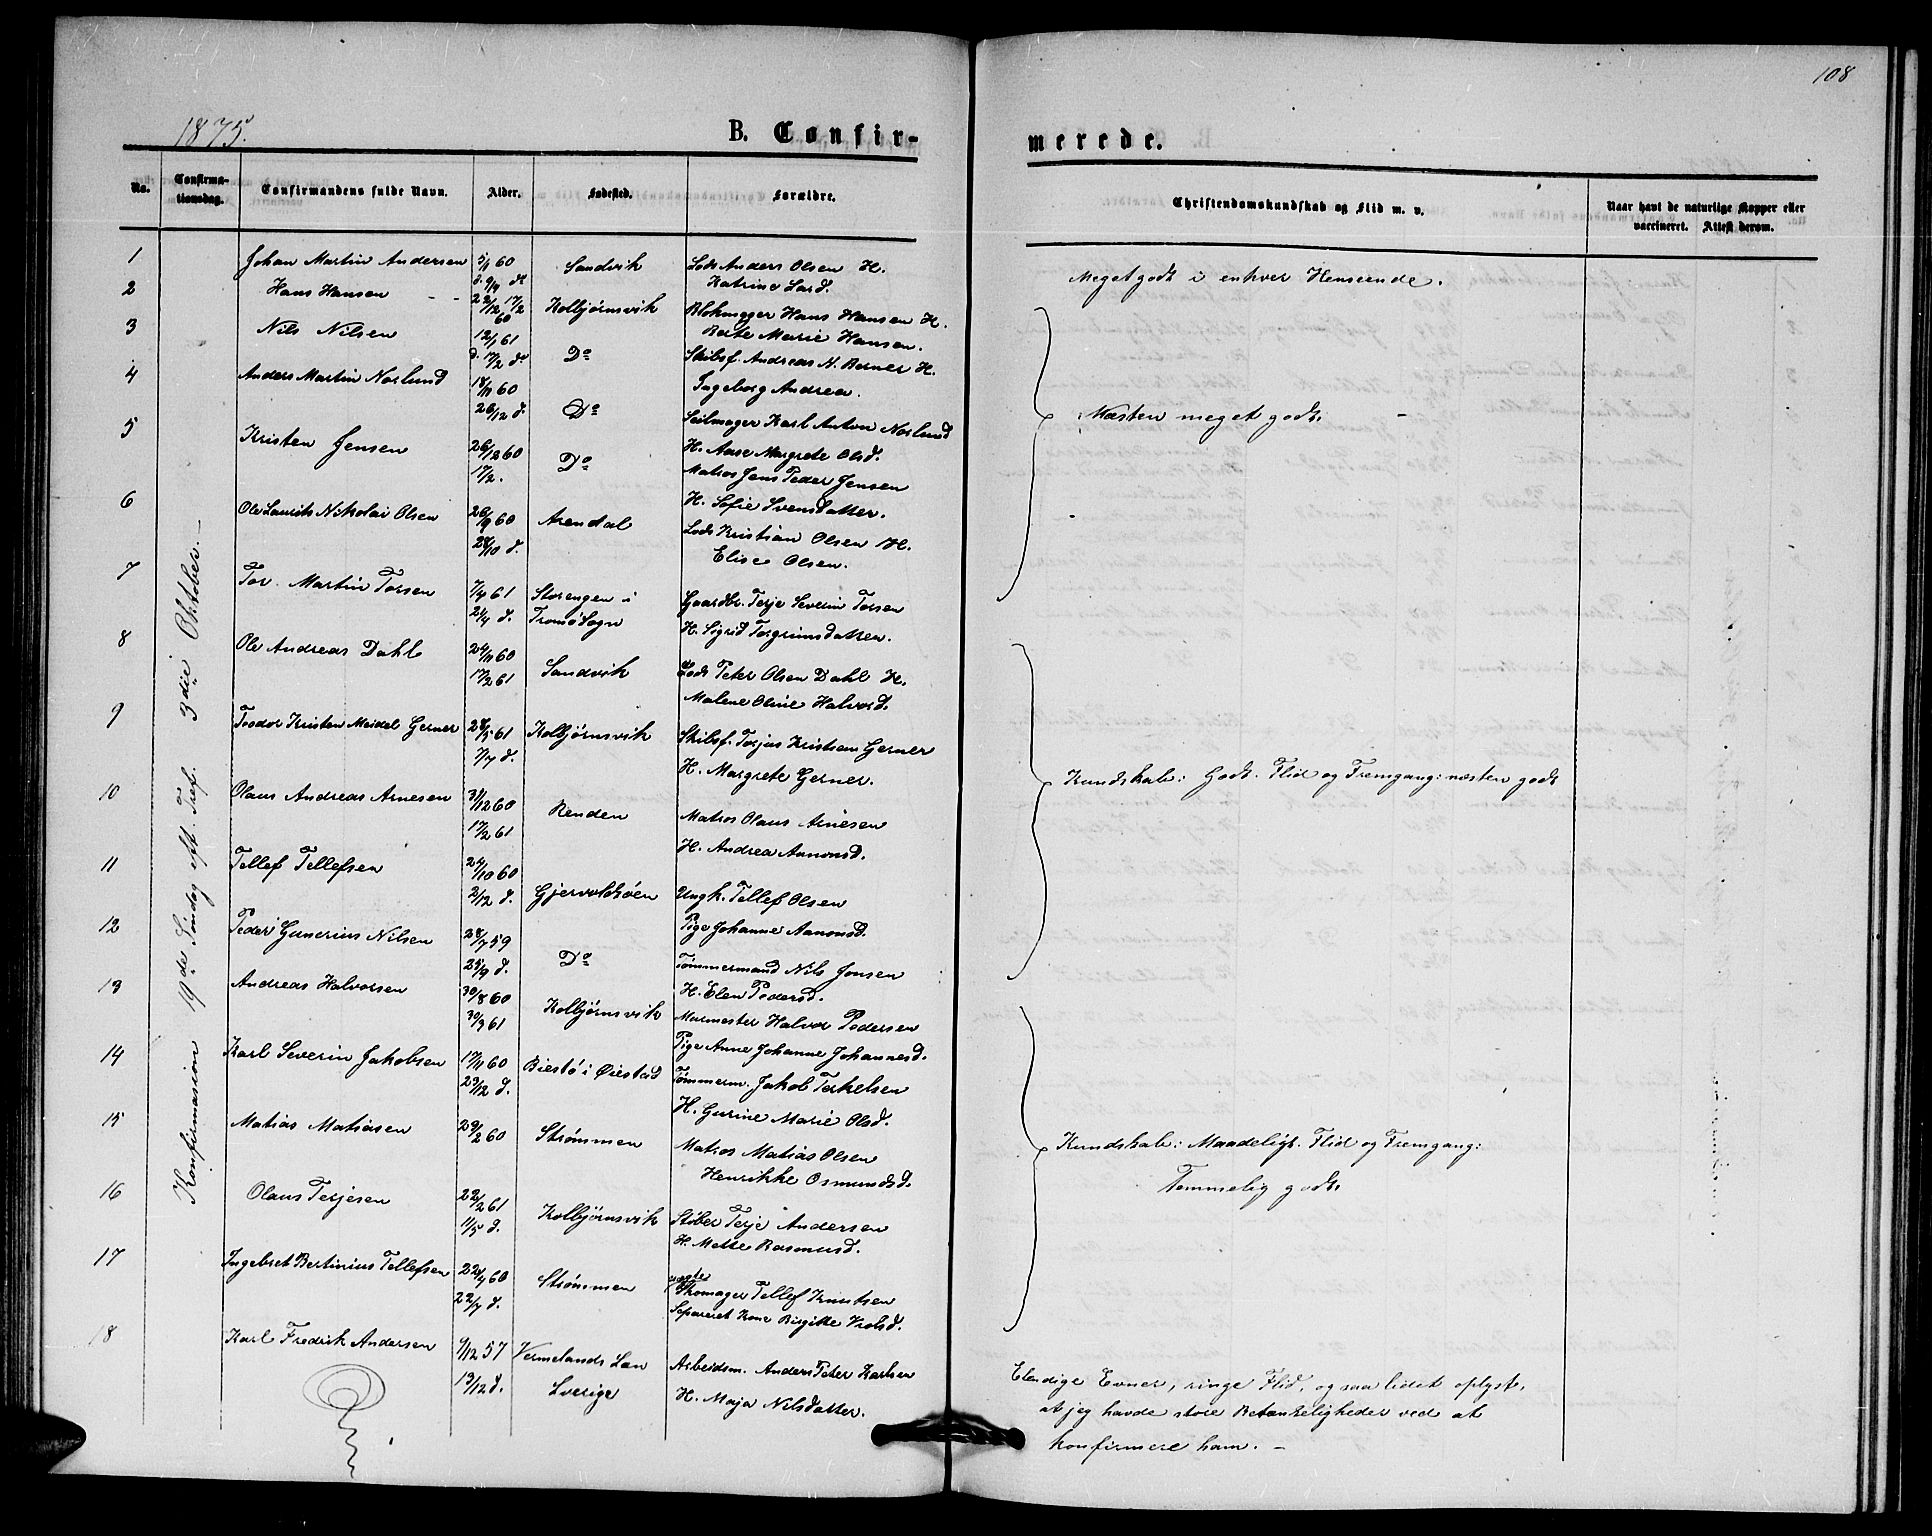 108
1875.
B. Confir-
merede.
No.
Confirma-
tionsdag.
Confirmandens fulde Navn.
Alder.
Fødested.
Forældre.
Christendomskundskab og Flid m. v.
Naar havt de naturlige Kopper eller
vaccineret. Attest derom.
Konfirmasion 19de Søndag eft. Tref. 3die Oktober.
1 Johan Martin Andersen 5/1 60 Sandvik Lods Anders Olsen H.
Katrine Larsd.
Meget godt i enhver Henseende.
2 Hans Hansen 22/12 17/2 60 Kolbjørnsvik Blokmager Hans Hansen H.
Berte Marie Hansen.
3 Nils Nilsen 12/1 61 17/2 do Do Skibsf. Andreas N. Berner H.
Ingeborg Andrea.
4 Anders Martin Norlund 18/11 60 26/12 d. Do Seilmager Karl Anton Norlund
H. Aase Margrete Olsd.
Næsten meget godt.
5 Kristen Jensen 26/12 60 17/2. Do Matros Jens Peder Jensen
H. Sofie Svensdatter.
6 Ole Laurits Nikolai Olsen 26/9 60 28/10 d. Arendal Lods Kristian Olsen H.
Elise Olsen.
7 Tor Martin Torsen 7/4 61 21/4 d. Storengen i
Tromø Sogn Gaardbr. Terje Severin Torsen
H. Sigrid Torgrimsdatter.
8 Ole Andreas Dahl 24/11 60 17/2 61 Sandvik Lods Peter Olsen Dahl H.
Malene Oline Halvorsd.
9 Teodor Kristen Meidel Gerner 28/5 61 7/7 d. Kolbjørnsvik Skibsf. Torjus Kristian Gerner
H. Margrete Gerner.
Kundskab: Godt. Flid og Fremgang: næsten godt
10 Olaus Andreas Arnesen 31/12 60 17/2 61 Renden Matros Olaus Arnesen
H. Andrea Aanonsd.
11 Tellef Tellefsen 24/10 60 2/12 d. Gjervoldsøen Ungk. Tellef Olsen
Pige Johanne Aanonsd.
12 Peder Gunerius Nilsen 28/7 59 25/9 d. Do Tømmermand Nils Jensen
H. Elen Pedersd.
13 Andreas Halvorsen 30/8 60 30/3 61 Kolbjørnsvik Murmester Halvor Pedersen
Pige Anne Johanne Johannesd.
14 Karl Severin Jakobsen 17/11 60 23/12 d. Biestø i Øiestad Tømmerm. Jakob Terkelsen
H. Gurine Marie Olsd.
15 Matias Matiasen 29/2 60 Strømmen Matros Matias Olsen
Henrikke Osmundsd.
Kundskab: Maadeligt. Flid og Fremgang:
Temmelig godt.
16 Olaus Terjesen 22/2 61 11/5 d. Kolbjørnsvik Støber Terje Andersen
H. Mette Rasmusd.
17 Ingebret Bertinius Tellefsen 22/4 60 22/7 d. Strømmen Skomager Tellef Knutsen
Separeret Kone Birgitte
18 Karl Fredrik Andersen 9/12 57 13/12 d. Vermelands Lan
Sverige Arbeidsm. Anders Peter Karlsen
H. Maja Nilsdatter.
Elendige Evner, ringe Flid, og saa lidet oplyst,
at jeg havde store Betænkeligheder ved at
konfirmere ham.